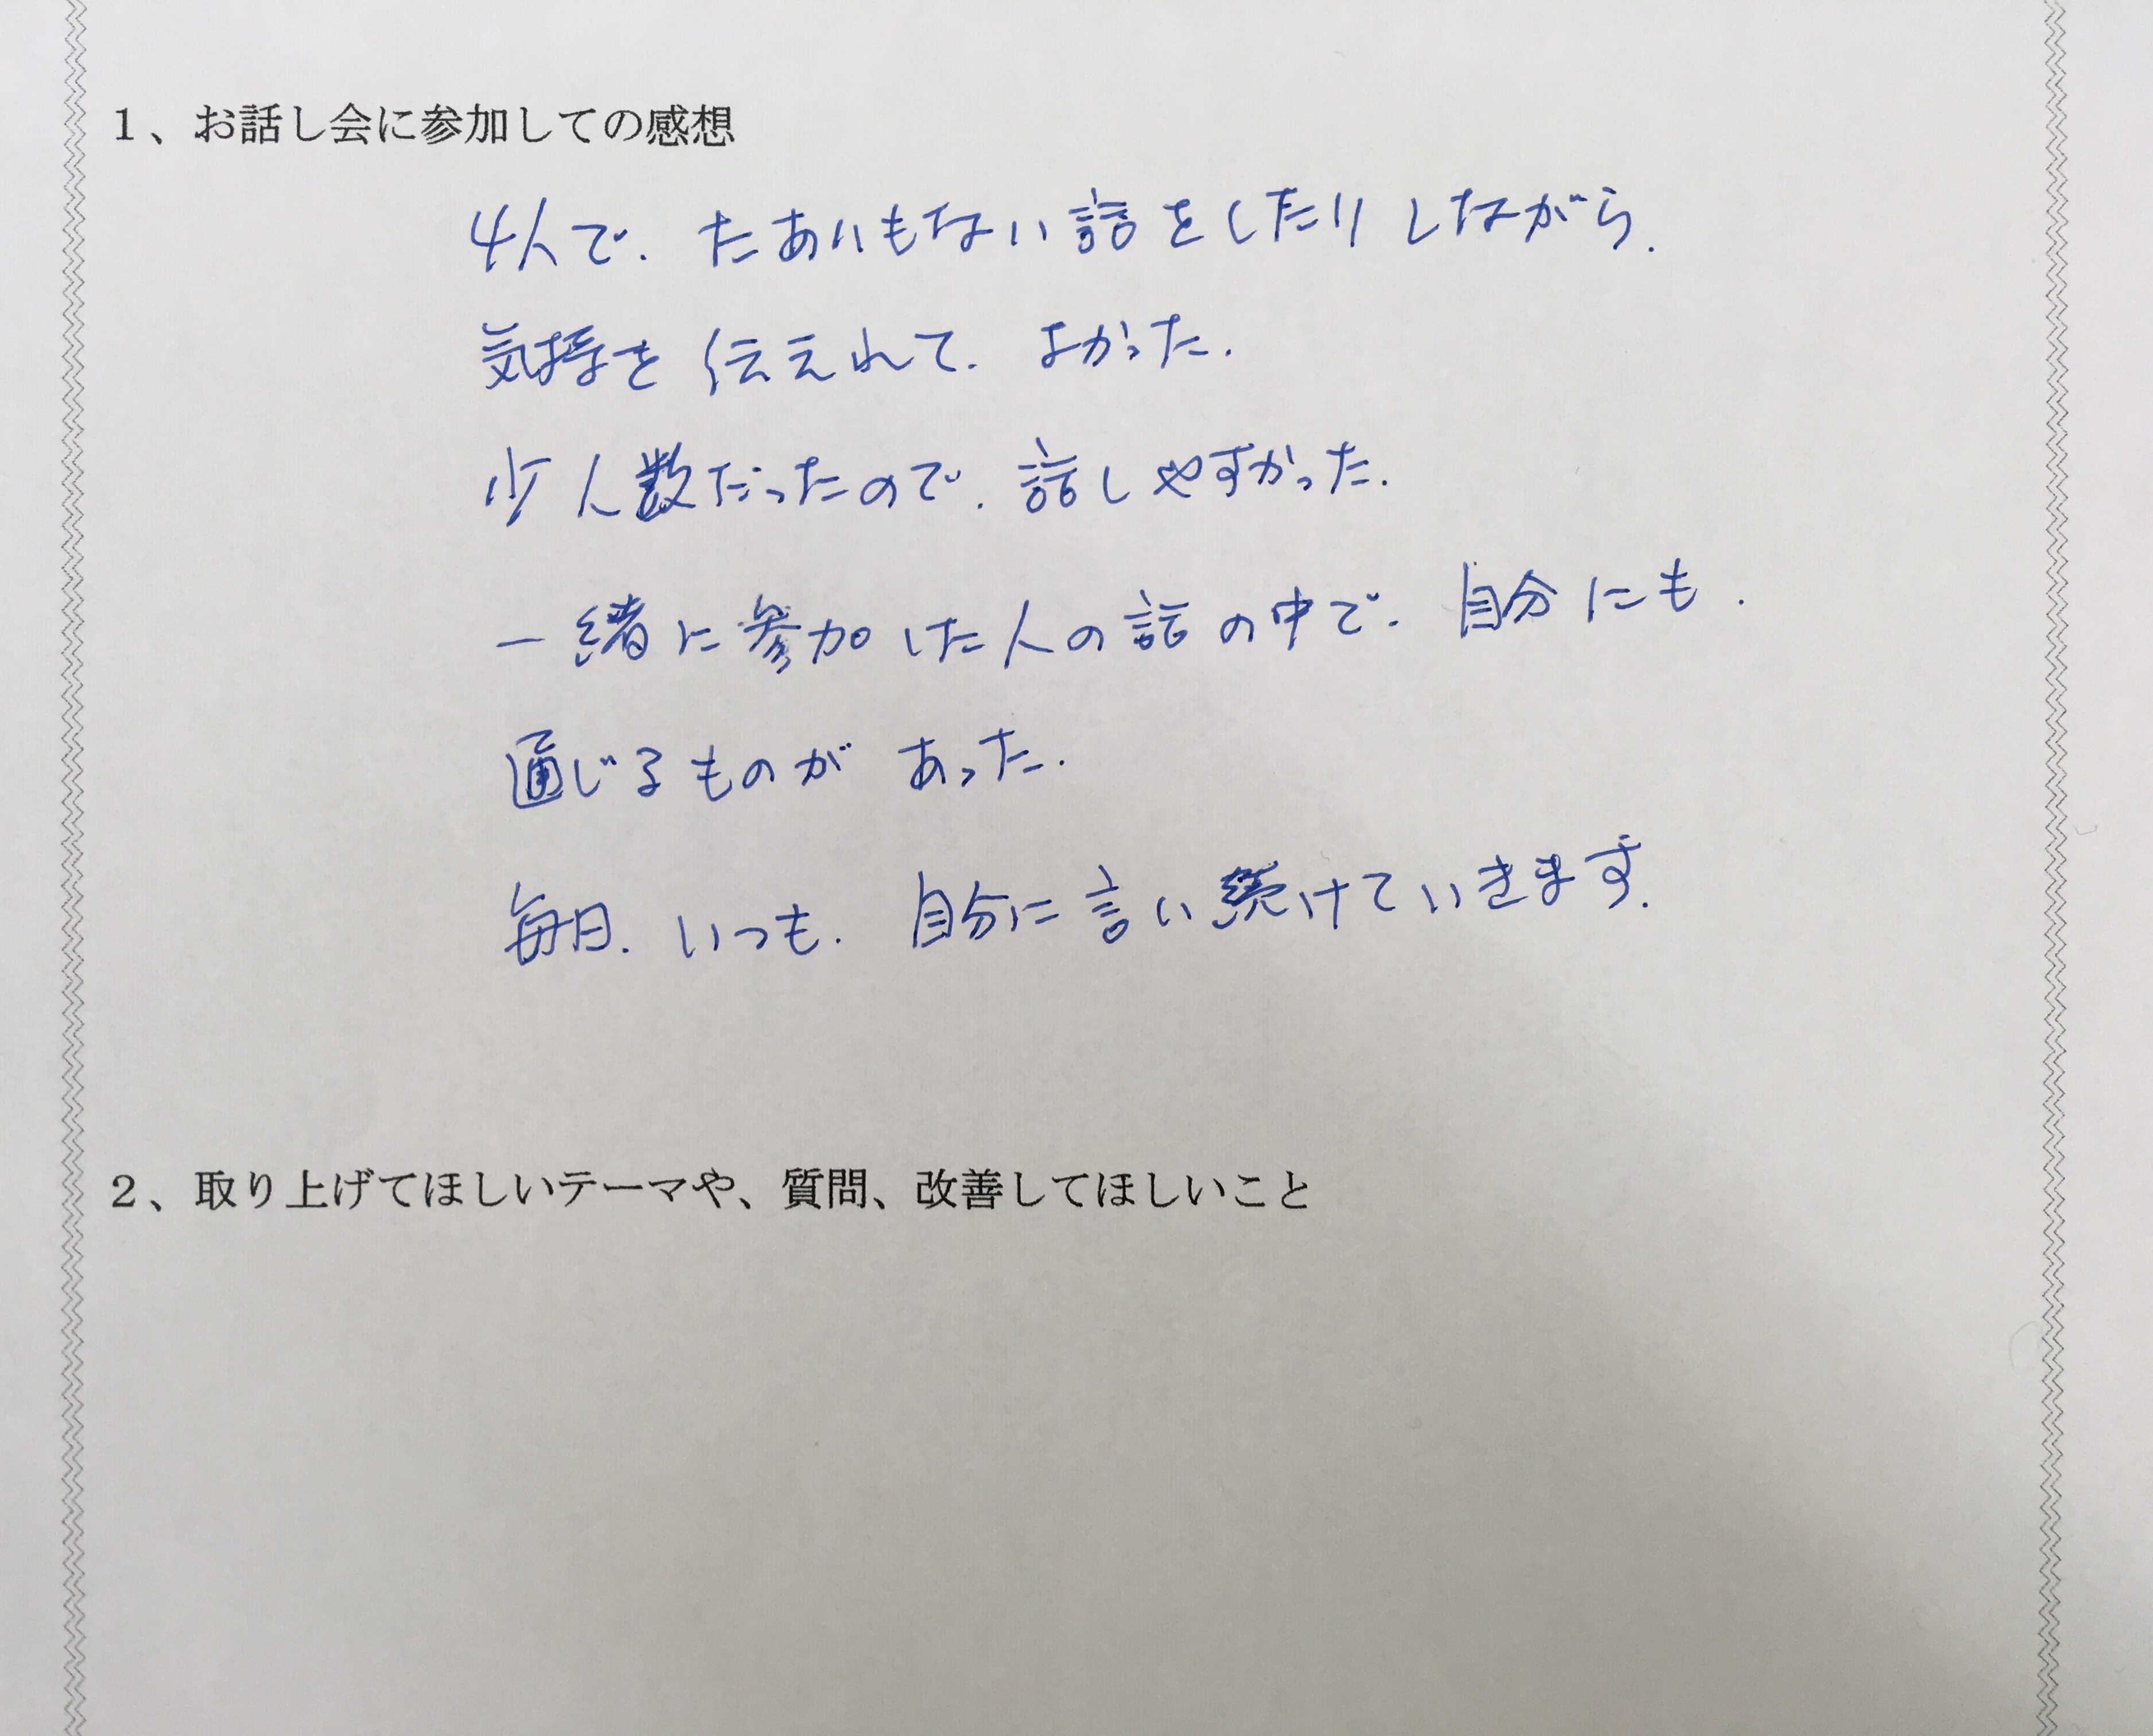 １、お話し会に参加しての感想
4人で、たあいもない話をしたりしながら、
気持を伝えれて、よかった。
少人数だったので、話しやすかった。
一緒に参加した人の話の中で、自分にも、
通じるものがあった。
毎日、いつも、自分に言い続けていきます。
２、取り上げてほしいテーマや、質問、改善してほしいこと